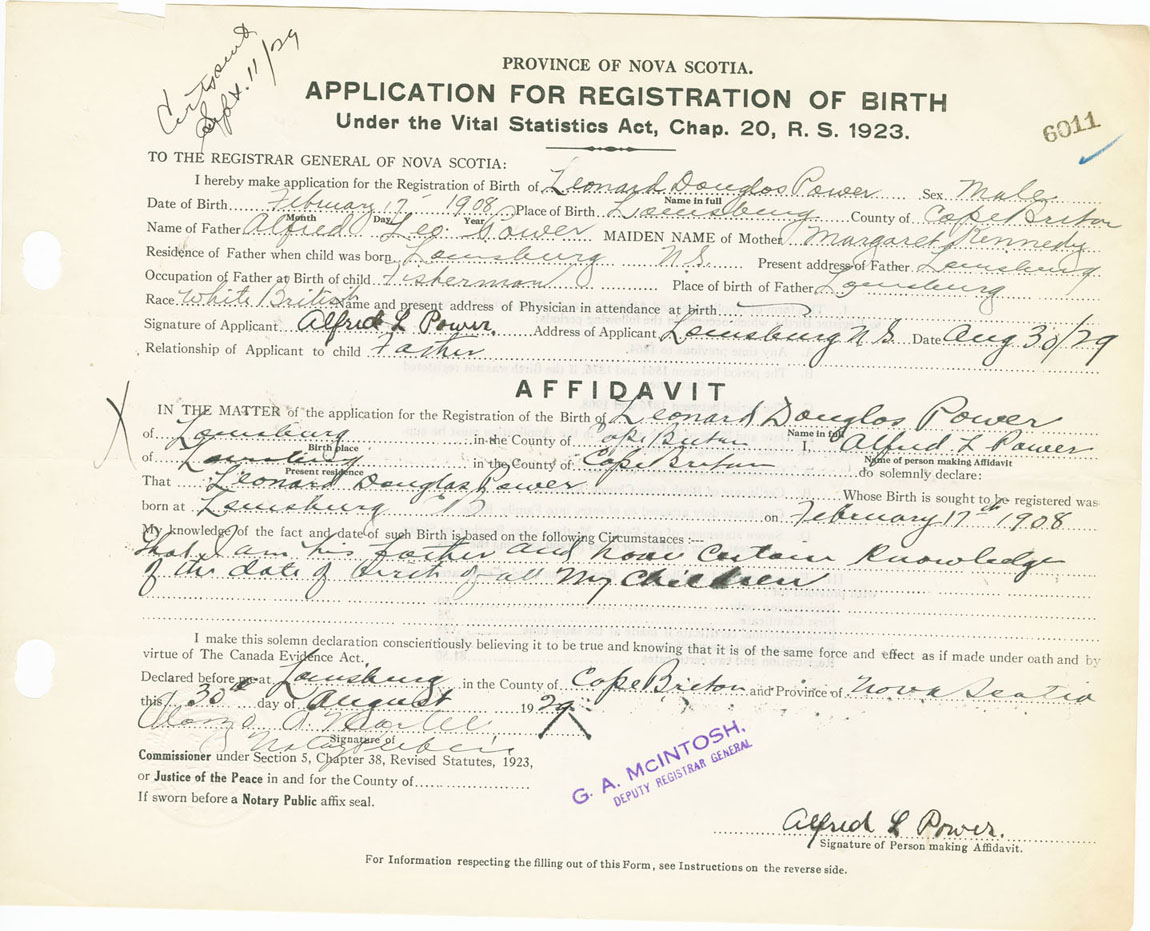 Cert sent
Sept. 11/29
PROVINCE OF NOVA SCOTIA.
APPLICATION FOR REGISTRATION OF BIRTH
Under the Vital Statistics Act, Chap. 20, R. S. 1923.
6011
TO THE REGISTRAR GENERAL OF NOVA SCOTIA:
I hereby make application for the Registration of Birth of Leonard Douglas Power Sex Male
Name in full
Date of Birth February 17 1908 Place of Birth Louisburg County of Cape Breton
Month Day Year
Name of Father Alfred Leo Power MAIDEN NAME of Mother Margaret Kennedy
Residence of Father when child was born Louisburg N.S. Present address of Father Louisburg
Occupation of Father at Birth of child Fisherman Place of birth of Father Louisburg
Race White British Name and present address of Physician in attendance at birth
Signature of Applicant Alfred L Power. Address of Applicant Louisburg N S Date Aug 30/29
Relationship of Applicant to child Father
AFFIDAVIT
X
IN THE MATTER of the application for the Registration of the Birth of Leonard Douglas Power
Name in full
of Louisburg in the County of Cape Breton I, Alfred L Power
Birth place Name of person making Affidavit
of Louisburg in the County of Cape Breton do solemnly declare:
Present residence
That Leonard Douglas Power Whose Birth is sought to be registered was
born at Louisburg C B on February 17th 1908
My knowledge of the fact and date of such Birth is based on the following Circumstances :---
that I am his Father and have certain Knowledge
of the date of birth of all My Children
I make this solemn declaration conscientiously believing it to be true and knowing that it is of the same force and effect as if made under oath and by
virtue of The Canada Evidence Act.
Declared before me at Louisburg in the County of Cape Breton and Province of Nova Scotia
this 30th day of August 1929
X
Signature of
Notary Public
Commissioner under Section 5, Chapter 38, Revised Statutes, 1923,
or Justice of the Peace in and for the County of
If sworn before a Notary Public affix seal.
G. A. McINTOSH,
DEPUTY REGISTRAR GENERAL
Alfred L Power.
Signature of Person making Affidavit.
For Information respecting the filling out of this Form, see Instructions on the reverse side.